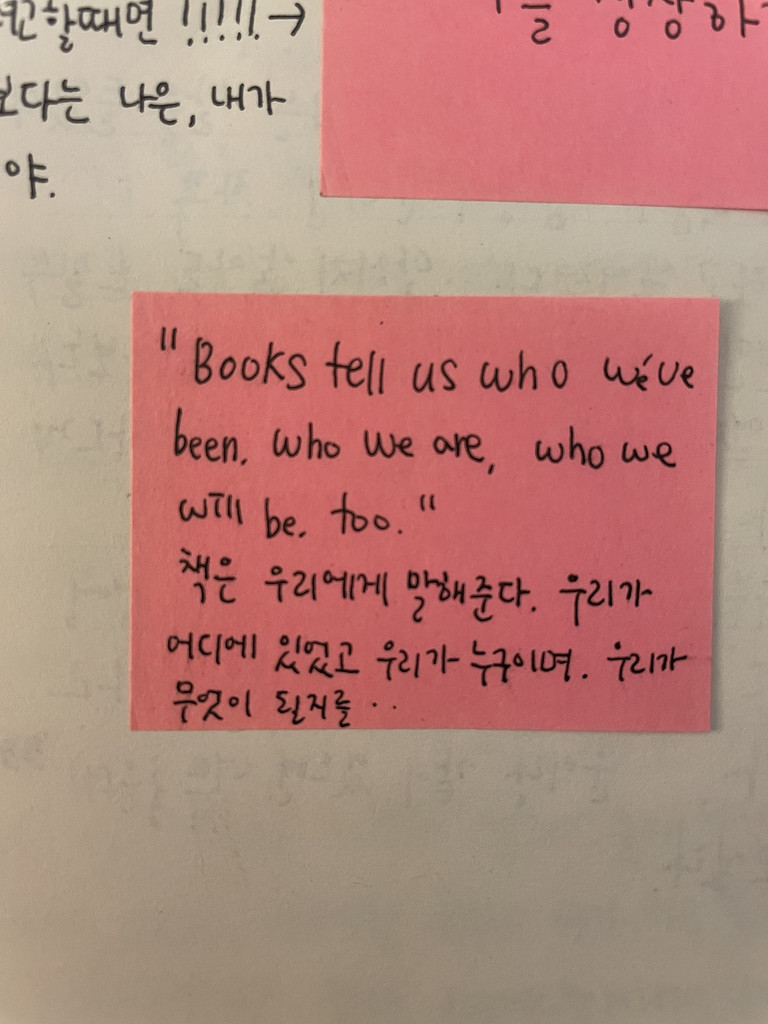 할때면 !!!!! →
보다는 나은, 내가
야.
"Books tell us who we've
been. who we are, who we
will be. too."
책은 우리에게 말해준다. 우리가
어디에 있었고 우리가 누구이며. 우리가
무엇이 될지를 ··